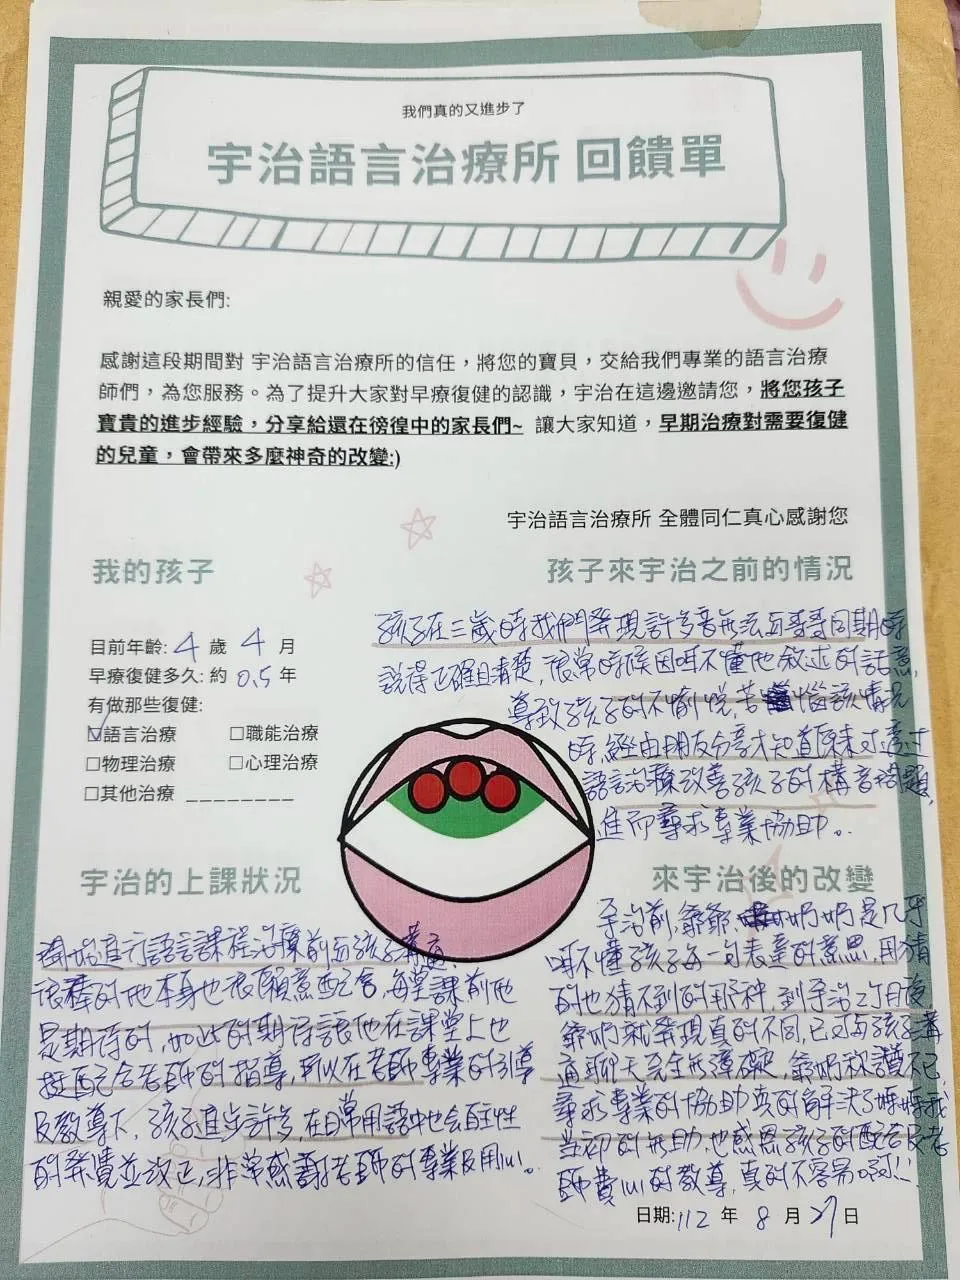 我們真的又進步了
宇治語言治療所 回饋單
親愛的家長們:
感謝這段期間對 宇治語言治療所的信任，將您的寶貝，交給我們專業的語言治療
師們，為您服務。為了提升大家對早療復健的認識，宇治在這邊邀請您，將您孩子
寶貴的進步經驗，分享給還在徬徨中的家長們~ 讓大家知道，早期治療對需要復健
的兒童，會帶來多麼神奇的改變:)
宇治語言治療所 全體同仁真心感謝您
我的孩子
目前年齡: 4 歲 4 月
早療復健多久: 約 0.5 年
有做那些復健:
☑語言治療 □職能治療
□物理治療 □心理治療
□其他治療 ________
孩子來宇治之前的情況
孩子在三歲時我們發現許多音無法與哥哥同期時
說得正確且清楚，很常時候因聽不懂他敘述的話意，
導致孩子的不愉悅，苦惱該情況
時，經由朋友分享才知道原來可透過
語言治療改善孩子的構音問題，
進而尋求專業協助。
宇治的上課狀況
開始進行語言課程治療前與孩子溝通，
很棒的他本身也很願意配合，每堂課前他
是期待的，如此的期待讓他在課堂上也
挺配合老師的指導，所以在老師專業的引導
及教導下，孩子進步許多，在日常用語中也會自主性
的發覺並改正，非常感謝老師的專業及用心。
來宇治後的改變
宇治前，爺爺奶奶是几乎
聽不懂孩子每一句表達的意思，用猜
的也猜不到的那种，到宇治2个月後，
爺奶就發現真的不同，已可與孩子溝
通聊天完全無障礙，爺奶称讚不已，
尋求專業的協助真的解決了媽媽我
當初的無助，也感恩孩子的配合及老
師費心的教導，真的不容易啊!!
日期: 112 年 8 月 27 日